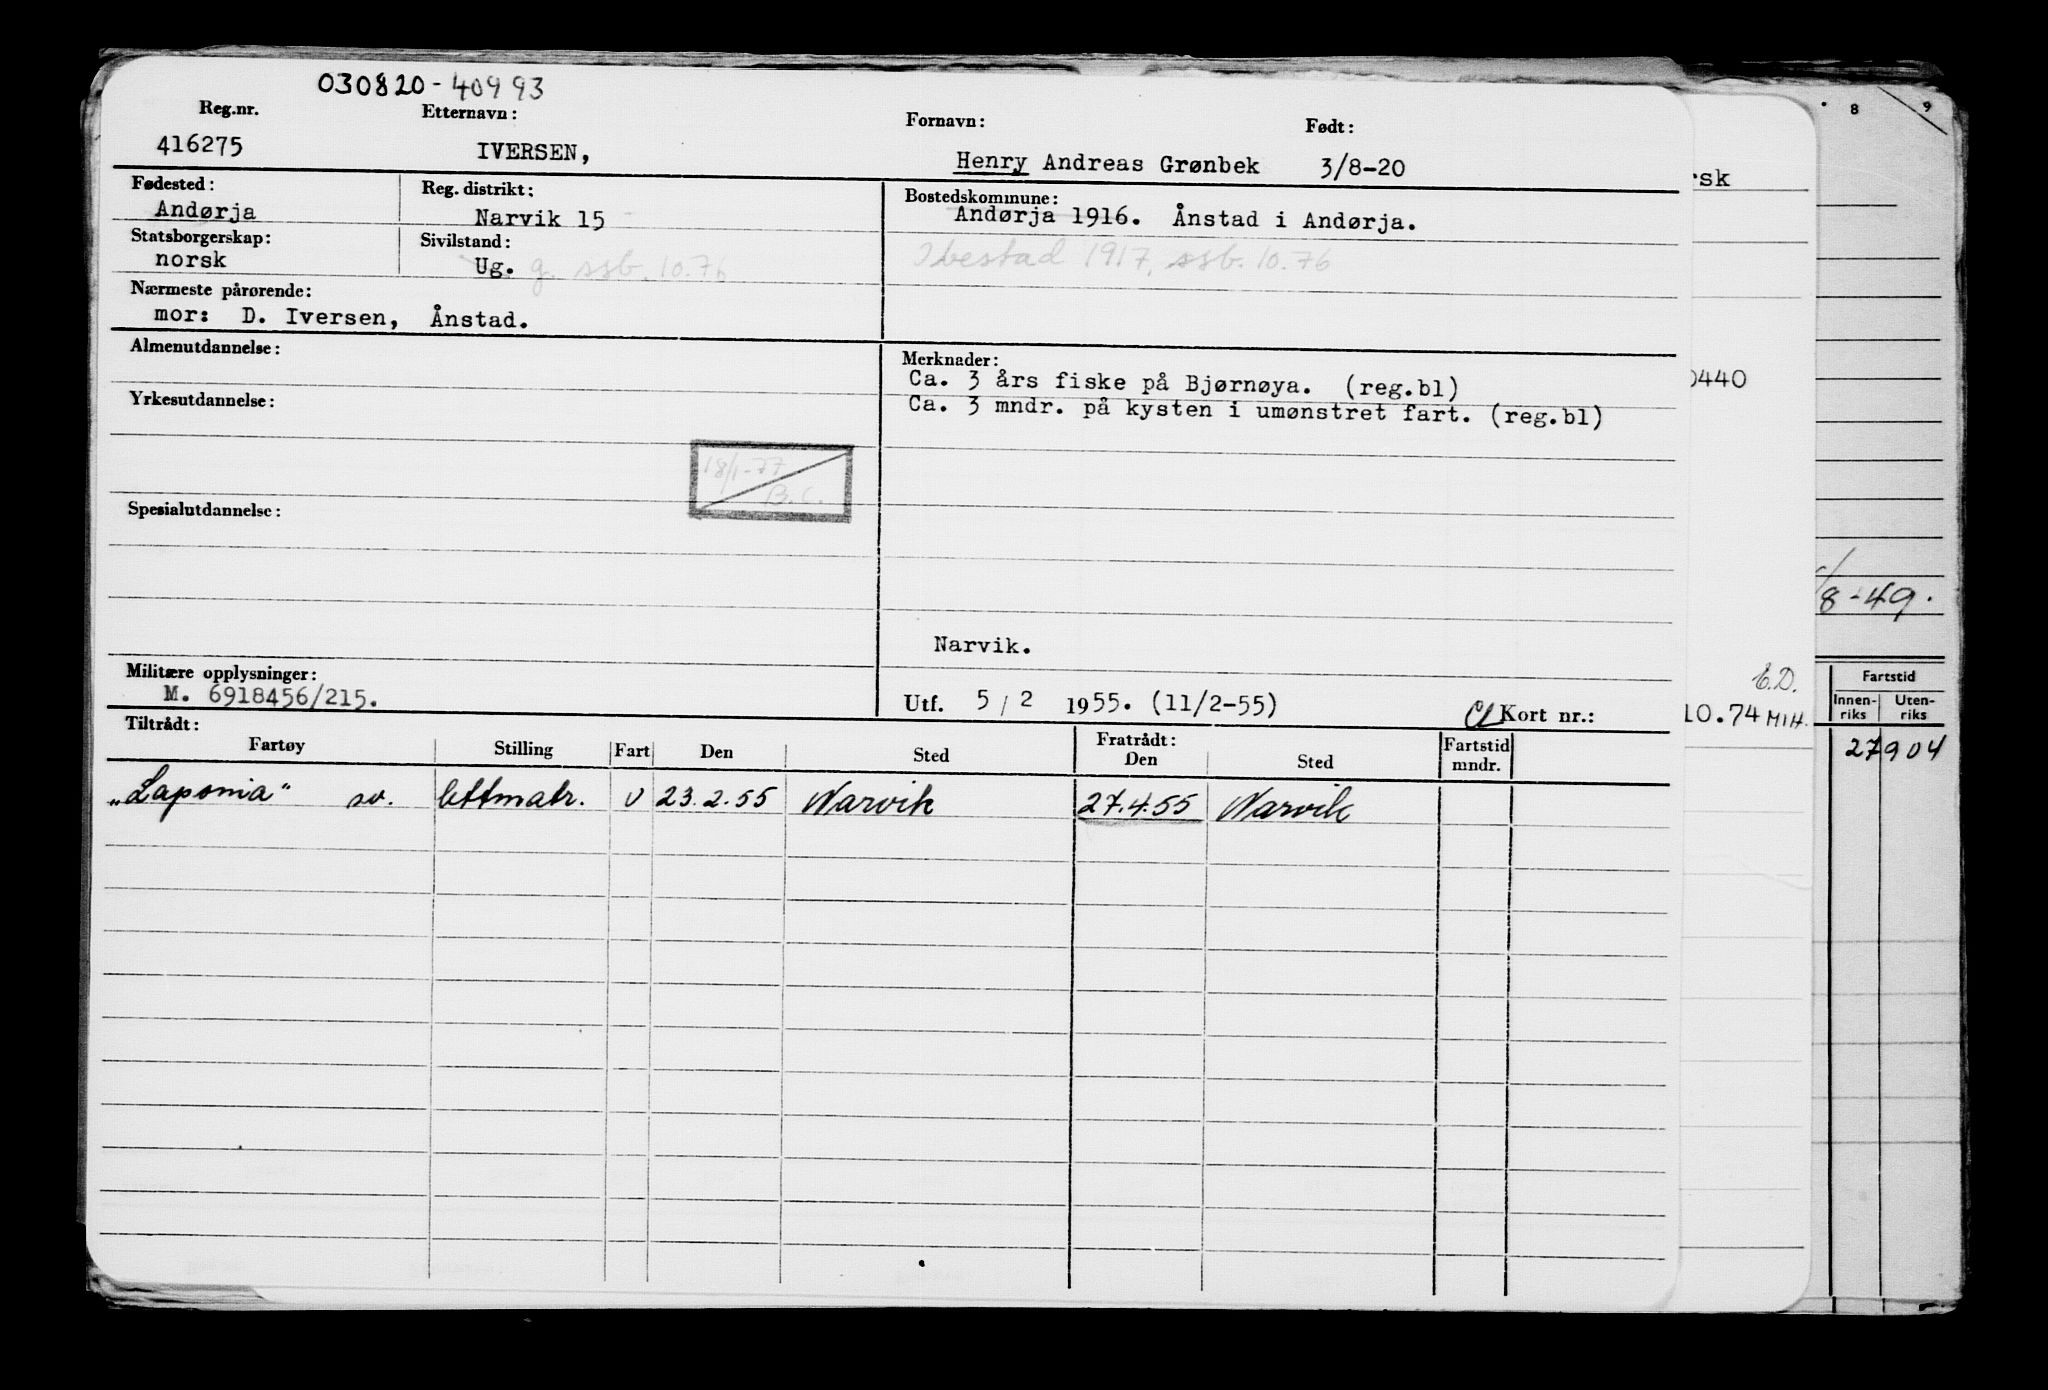 030820-40993
Reg.nr. Etternavn: Fornavn: Født:
416275 IVERSEN, Henry Andreas Grønbek 3/8-20
Fødested: Reg. distrikt: Bostedskommune:
Andørja Narvik 15 Andørja 1916. Ånstad i Andørja.
Statsborgerskap: Sivilstand: Ibestad 1917, ssb. 10.76
norsk Ug. g. ssb. 10.76
Nærmeste pårørende:
mor: D. Iversen, Ånstad.
Almenutdannelse: Merknader:
Ca. 3 års fiske på Bjørnøya. (reg.bl)
Yrkesutdannelse: Ca. 3 mndr. på kysten i umønstret fart. (reg.bl)
18/1-77
B.C.
Spesialutdannelse:
Narvik.
Militære opplysninger:
M. 6918456/215. Utf. 5/2 1955. (11/2-55) Kort nr.:
Tiltrådt: Fratrådt:
Fartøy Stilling Fart Den Sted Den Sted Fartstid mndr.
"Laponia" lettmatr. U 23.2.55 Narvik 27.4.55 Narvik
8 9
rsk
0440
/8-49.
E.D.
10.74 MIH.
Fartstid
Innen-riks Uten-riks
27 904